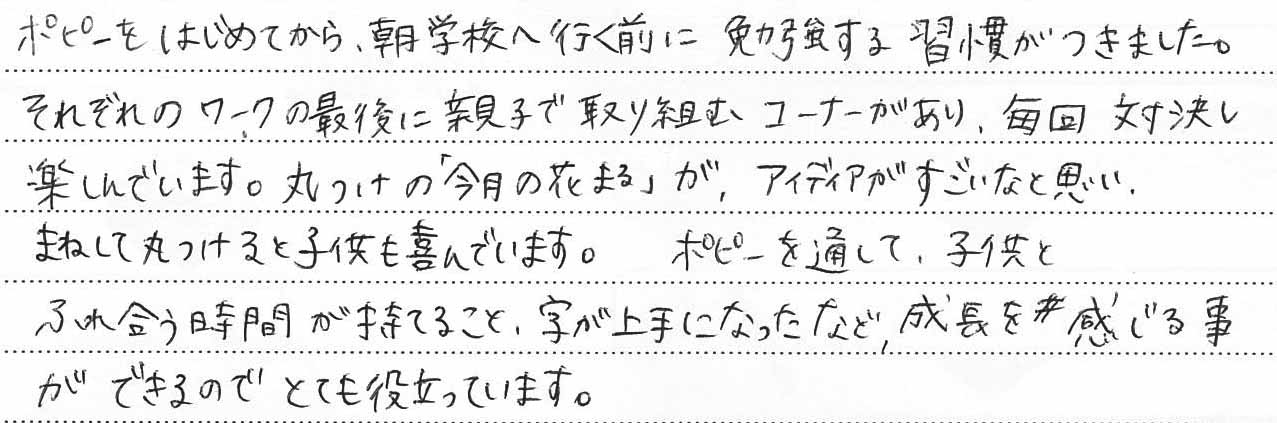 ポピーをはじめてから、朝学校へ行く前に勉強する習慣がつきました。
それぞれのワークの最後に親子で取り組むコーナーがあり、毎回対決し
楽しんでいます。丸つけの「今月の花まる」が、アイディアがすごいなと思い、
まねして丸つけると子供も喜んでいます。 ポピーを通して、子供と
ふれ合う時間が持てること、字が上手になったなど、成長を感じる事
ができるのでとても役立っています。